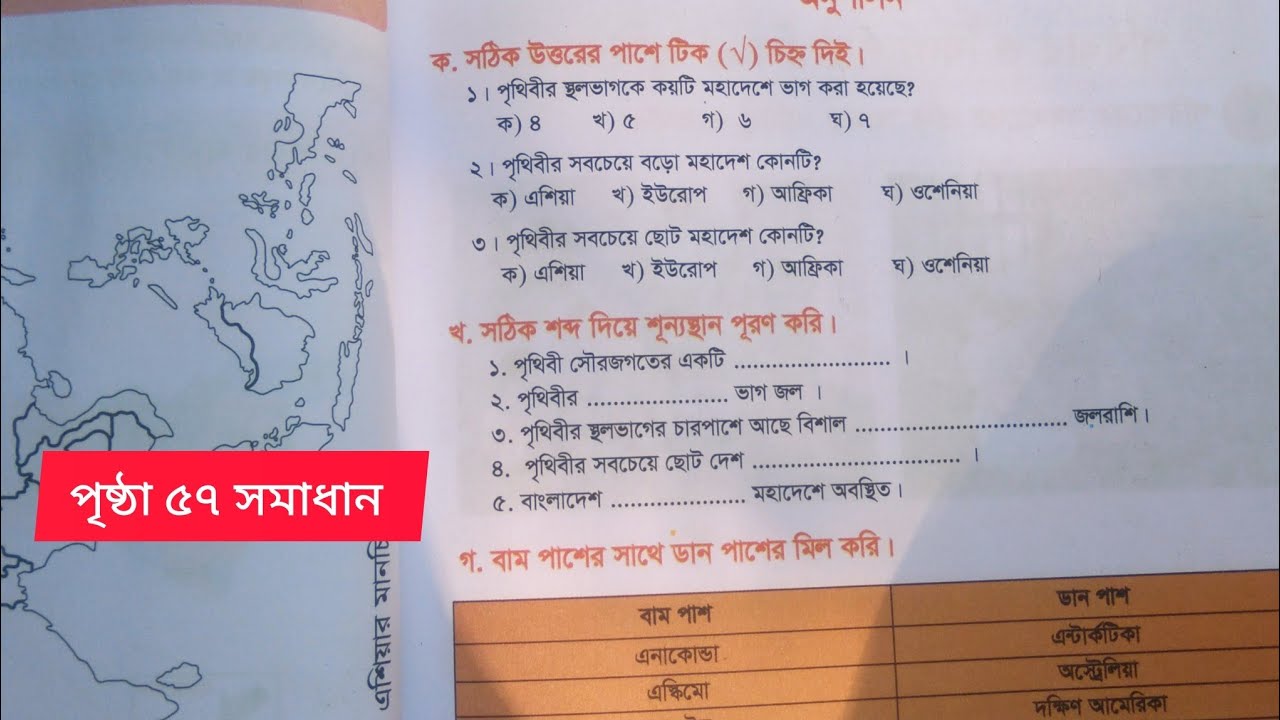 ক. সঠিক উত্তরের পাশে টিক (√) চিহ্ন দিই।
১। পৃথিবীর স্থলভাগকে কয়টি মহাদেশে ভাগ করা হয়েছে?
ক) ৪ খ) ৫ গ) ৬ ঘ) ৭
২। পৃথিবীর সবচেয়ে বড়ো মহাদেশ কোনটি?
ক) এশিয়া খ) ইউরোপ গ) আফ্রিকা ঘ) ওশেনিয়া
৩। পৃথিবীর সবচেয়ে ছোট মহাদেশ কোনটি?
ক) এশিয়া খ) ইউরোপ গ) আফ্রিকা ঘ) ওশেনিয়া
খ. সঠিক শব্দ দিয়ে শূন্যস্থান পূরণ করি।
১. পৃথিবী সৌরজগতের একটি ........................ ।
২. পৃথিবীর ...................... ভাগ জল ।
৩. পৃথিবীর স্থলভাগের চারপাশে আছে বিশাল ................................. জলরাশি।
৪. পৃথিবীর সবচেয়ে ছোট দেশ ................................ ।
৫. বাংলাদেশ ..................... মহাদেশে অবস্থিত।
গ. বাম পাশের সাথে ডান পাশের মিল করি।
বাম পাশ ডান পাশ
এনাকোন্ডা এন্টার্কটিকা
এস্কিমো অস্ট্রেলিয়া
দক্ষিণ আমেরিকা
পৃষ্ঠা ৫৭ সমাধান
এশিয়ার